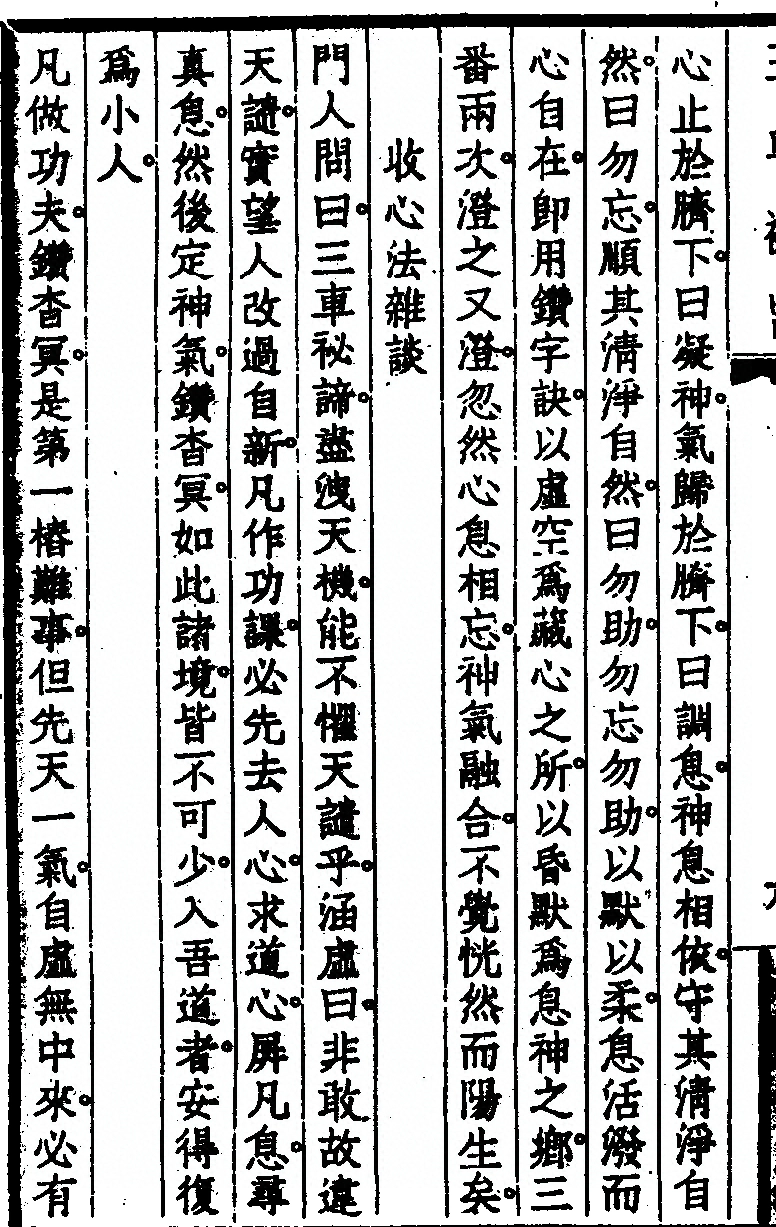 心止於臍下。曰凝神。氣歸於臍下。曰調息。神息相依。守其清淨自
然。曰勿忘。順其清淨自然。曰勿助。勿忘勿助。以默以柔。息活潑而
心自在。卽用鑽字訣。以虛空爲藏心之所。以昏默爲息神之鄉。三
番兩次。澄之又澄。忽然心息相忘。神氣融合。不覺恍然而陽生矣。
收心法雜談
門人問曰。三車祕諦。盡洩天機。能不懼天譴乎。涵虛曰。非敢故違
天譴。實望人改過自新。凡作功課。必先去人心。求道心。屏凡息。尋
真息。然後定神氣。鑽杳冥。如此諸境。皆不可少。入吾道者。安得復
爲小人。
凡做功夫。鑽杳冥。是第一樁難事。但先天一氣。自虛無中來。必有